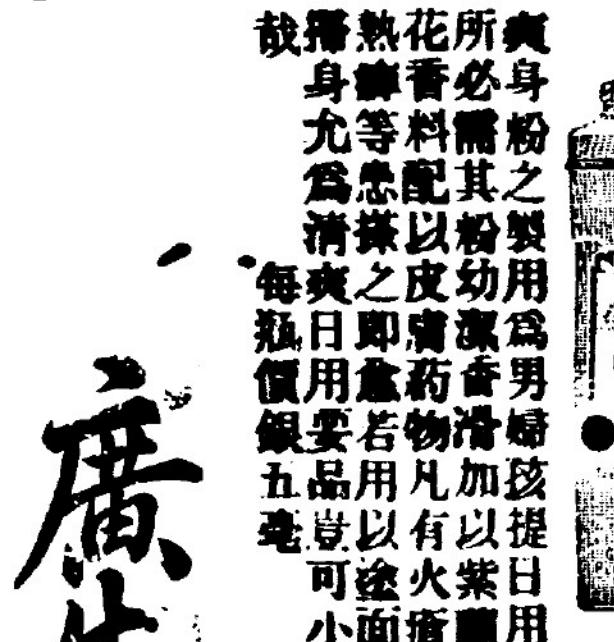 爽身粉之製用爲男婦孩提日用
所必需其粉幼潔香滑加以紫蘭
花香料配以皮膚药物凡有火瘡
熱痱等患搽之即愈若用以塗面
搽身允爲清爽日用要品豈可小
哉
每瓶價銀五毫
廣生